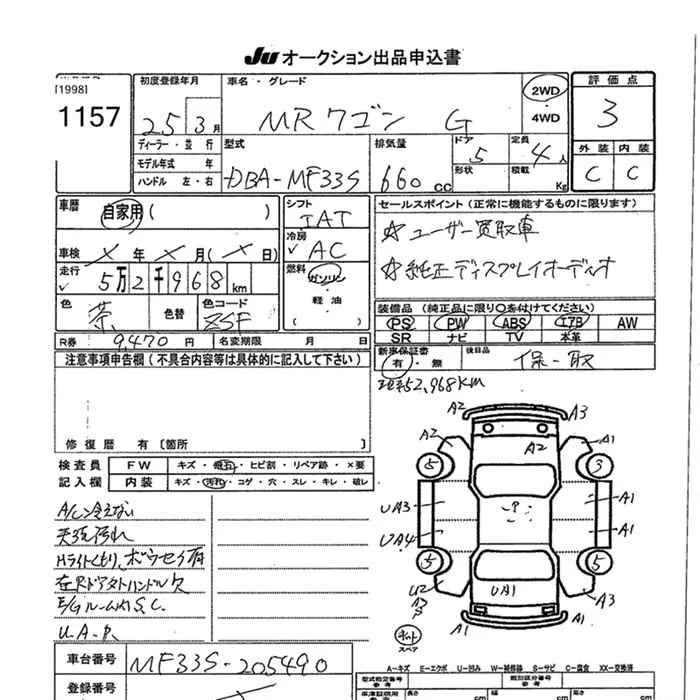 Ju オークション出品申込書
[1998]
1157
初度登録年月
25 3月
車名・グレード
MRワゴン G
2WD
4WD
評価点
3
外装 内装
C C
ディーラー・並行
モデル年式 年
ハンドル 左・右
型式
DBA-MF33S
排気量
660 CC
ドア
5
形状
定員
4人
積載 Kg
車歴
自家用( )
シフト
IAT
セールスポイント(正常に機能するものに限ります)
☆ユーザー買取車
☆純正ディスプレイオーディオ
車検 × 年 × 月( × 日)
冷房
AC
走行
5万2千968km
燃料
ガソリン
軽油
( )
色
茶
色替
色コード
ZSF
装備品(純正品に限り○を付けてください)
PS PW ABS エアB AW
SR ナビ TV 本革
R券 9470 円
名変期限 月 日
新車保証書
有・無
後日品
保-取
注意事項申告欄(不具合内容等は具体的に記入して下さい)
52,968KM
修復歴 有〔箇所
検査員
記入欄
FW キズ・飛石・ヒビ割・リペア跡・×要
内装 キズ・汚れ・コゲ・穴・スレ・キレ・破レ
A/C冷えない
天張汚れ
Hライトくもり、ボウセイ有
右Rドアアウトハンドル欠
E/Gルーム内S.C.
U.A.P.
A2 A3
A2 A2 A1
5 3
UA3 P A1
UA4 A1
5 5
U2 A3 UA1 A3
A1 A1
スペア
A-キズ E-エクボ U-凹み W-補修跡 S-サビ C-腐食 XX-交換済
車台番号
MF33S-205490
登録番号
型式指定番号
類別区分番号
長さ
幅
高さ
cm